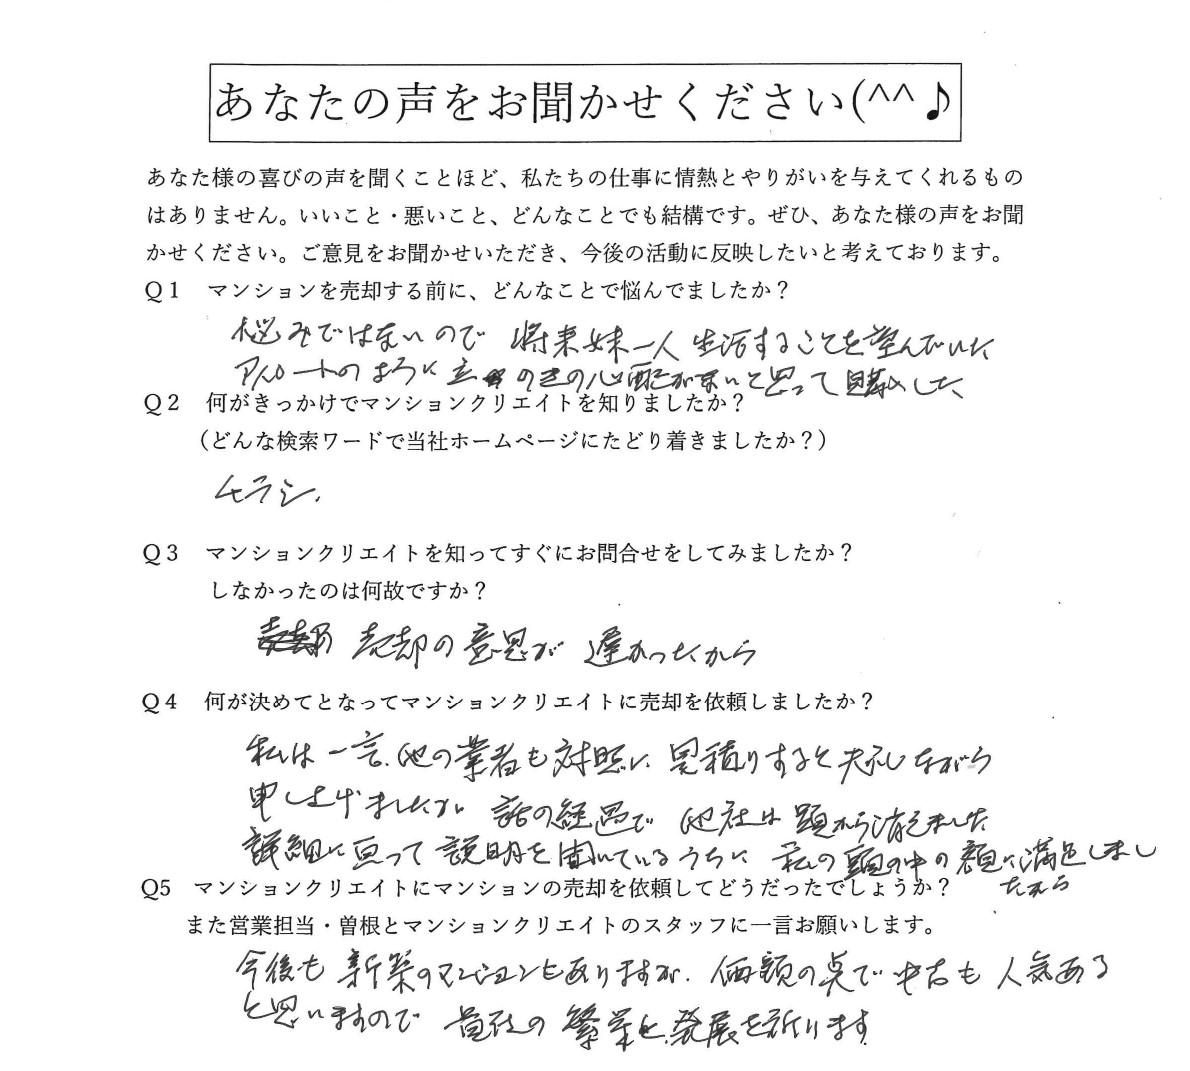 あなたの声をお聞かせください(^^♪
あなた様の喜びの声を聞くことほど、私たちの仕事に情熱とやりがいを与えてくれるもの
はありません。いいこと・悪いこと、どんなことでも結構です。ぜひ、あなた様の声をお聞
かせください。ご意見をお聞かせいただき、今後の活動に反映したいと考えております。
Q1 マンションを売却する前に、どんなことで悩んでましたか?
悩みではないので 将来妹一人生活することを望んでいた
アパートのように立 のきの心配がないと思って購入した
Q2 何がきっかけでマンションクリエイトを知りましたか?
(どんな検索ワードで当社ホームページにたどり着きましたか?)
チラシ.
Q3 マンションクリエイトを知ってすぐにお問合せをしてみましたか?
しなかったのは何故ですか?
売却の意思が 遅かったから
Q4 何が決めてとなってマンションクリエイトに売却を依頼しましたか?
私は一言、他の業者も対照に 見積りすると失礼しながら
申し上げましたが 話の経過で 他社は頭から消えました
詳細に亘って説明を聞いているうちに 私の頭の中の額に満足しまし
たから
Q5 マンションクリエイトにマンションの売却を依頼してどうだったでしょうか?
また営業担当・曽根とマンションクリエイトのスタッフに一言お願いします。
今後も 新築のマンションもありますが、価額の点で中古も人気ある
と思いますので 貴社の繁栄と発展を祈ります